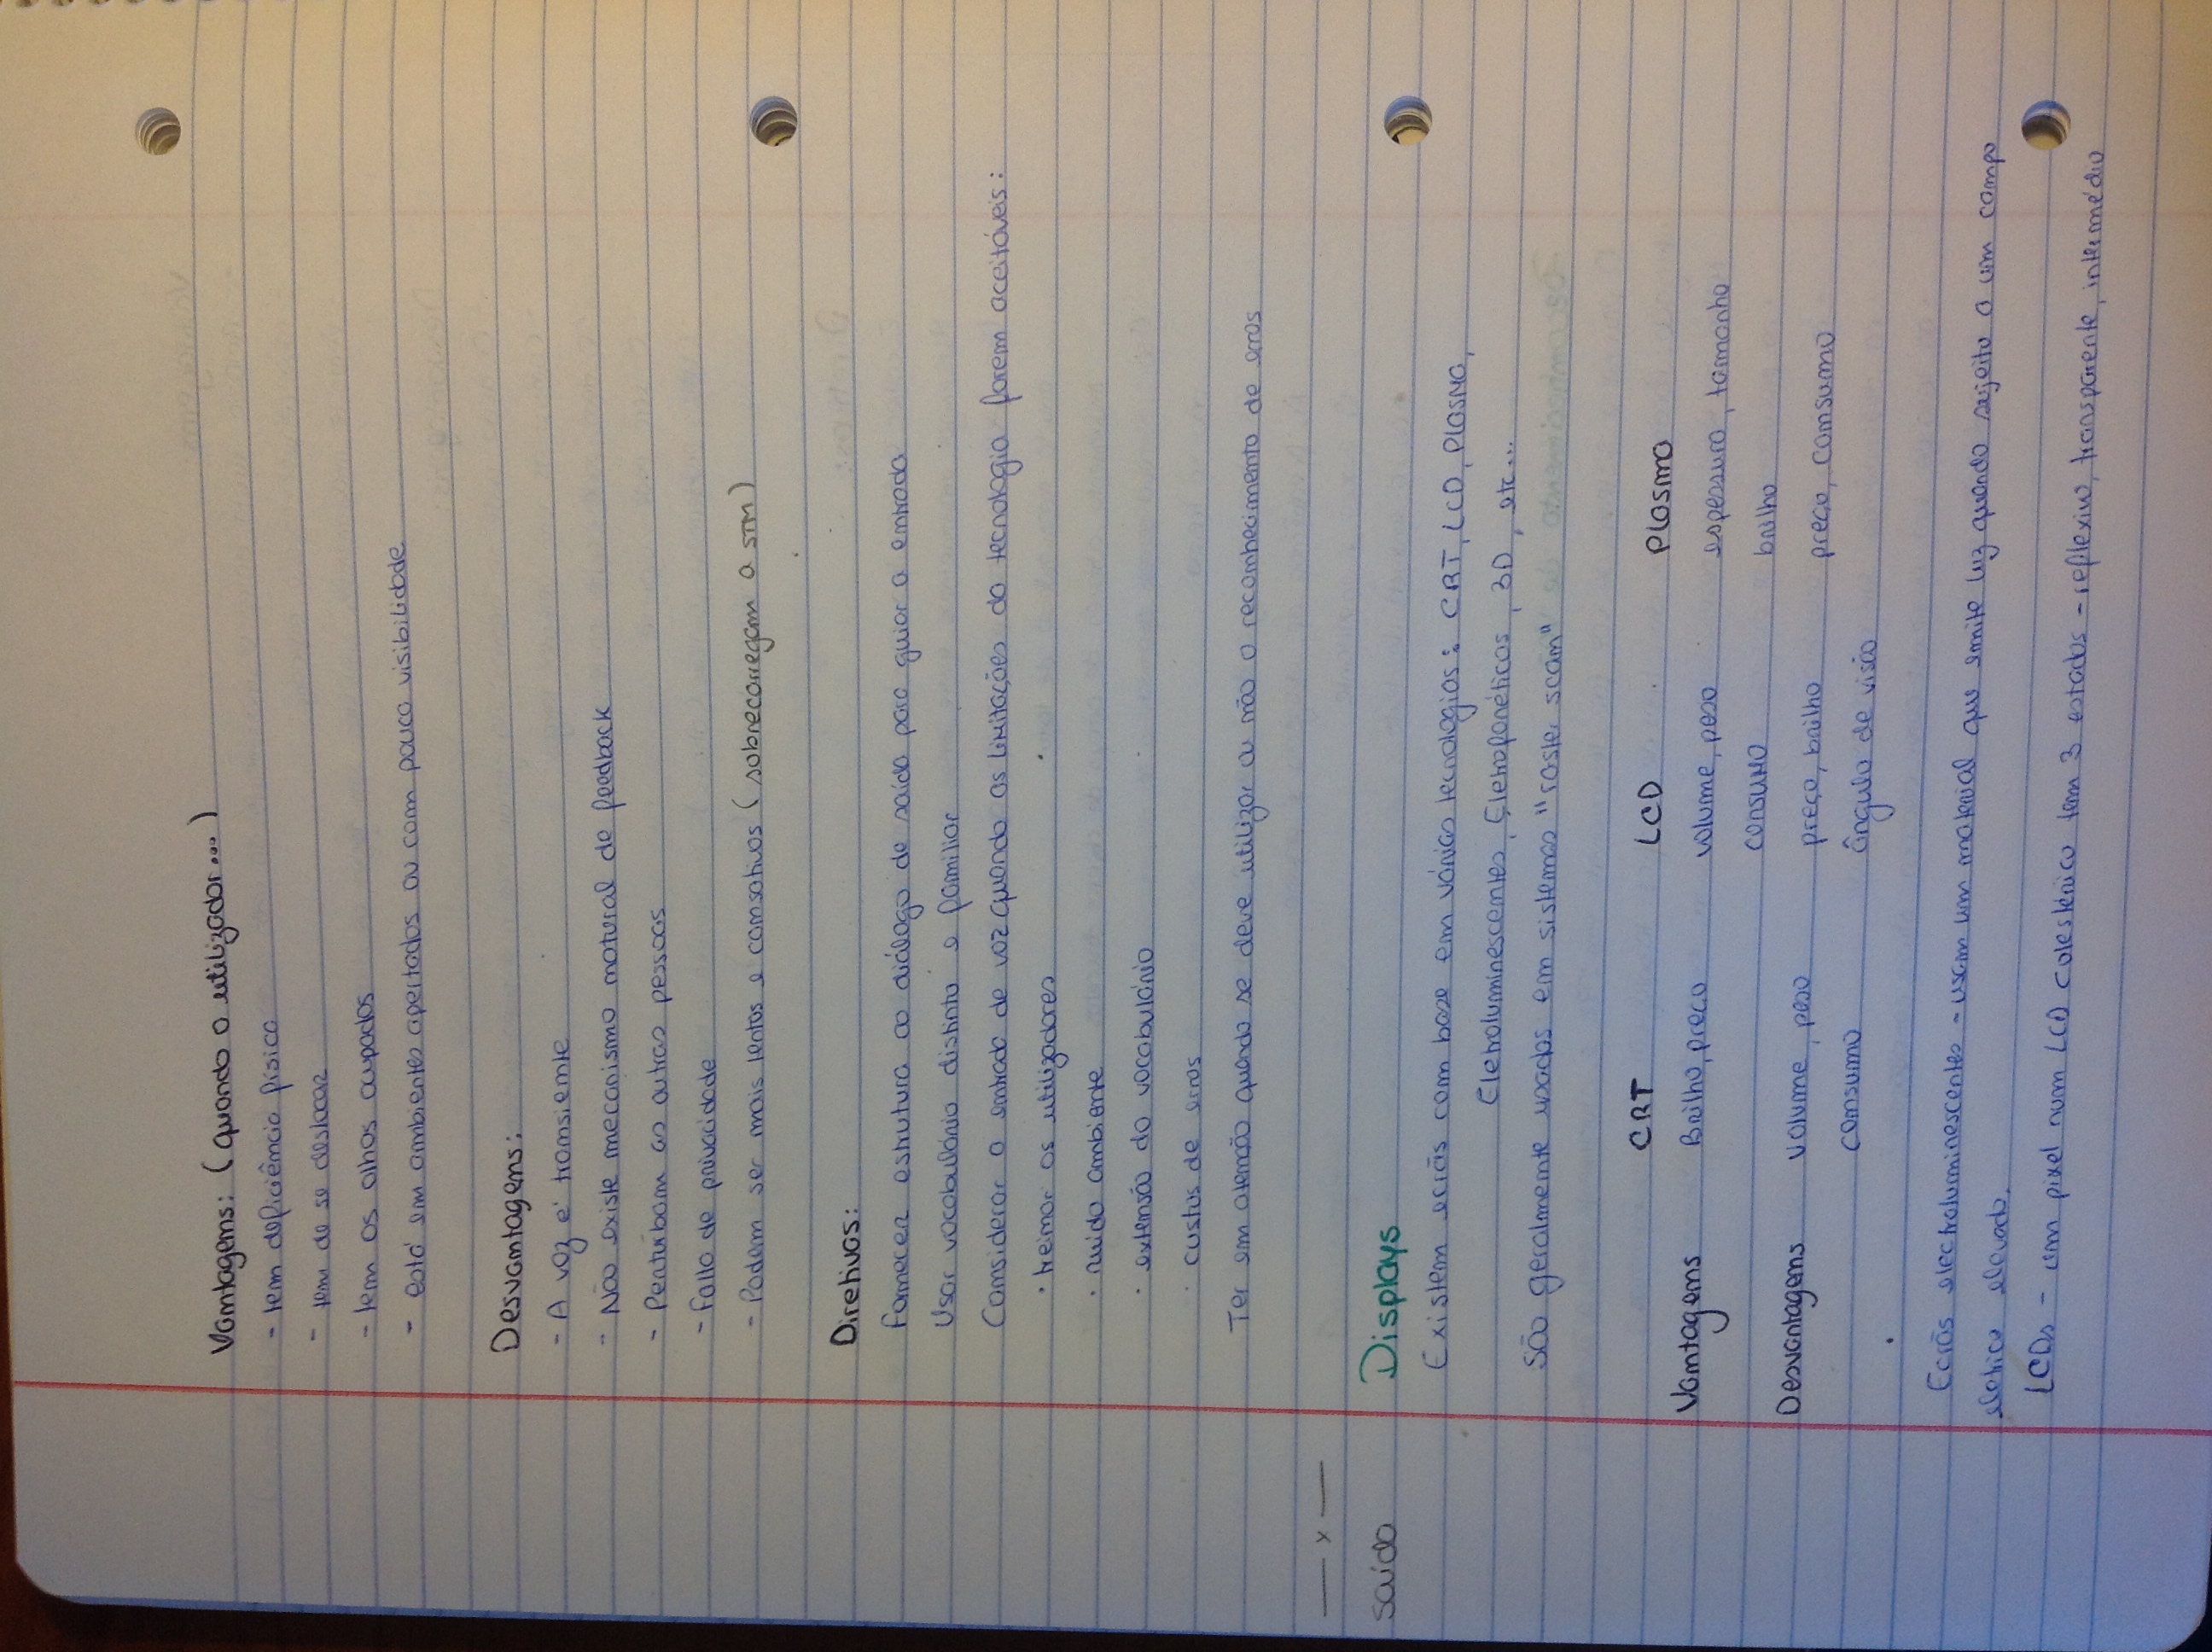 Vantagens: (quando o utilizador...)
- tem deficiência física
- tem de se deslocar
- tem os olhos ocupados
- está em ambientes apertados ou com pouca visibilidade
Desvantagens:
- A voz é transiente
- Não existe mecanismo natural de feedback
- Perturbam as outras pessoas
- Falta de privacidade
- Podem ser mais lentos e cansativos (sobrecarregam a STM)
Diretivas:
Fornecer estrutura ao diálogo de saída para guiar a entrada
Usar vocabulário distinto e familiar
Considerar a entrada de voz quando as limitações da tecnologia forem aceitáveis:
· treinar os utilizadores
· ruido ambiente
· extensão do vocabulário
· custos de erros
Ter em atenção quando se deve utilizar ou não o reconhecimento de erros
— x —
Saída
Displays
Existem ecrãs com base em várias tecnologias: CRT, LCD, Plasma,
Eletroluminescentes, Eletroforéticos, 3D, etc...
São geralmente usados em sistemas "raster scan"
CRT LCD Plasma
Vantagens Brilho, preço volume, peso espessura, tamanho
consumo brilho
Desvantagens volume, peso preço, brilho preço, consumo
consumo ângulo de visão
Ecrãs electroluminescentes - usam um material que emite luz quando sujeito a um campo
eletrico elevado.
LCDs - um pixel num LCD colestérico tem 3 estados - reflexivo, transparente, intermédio